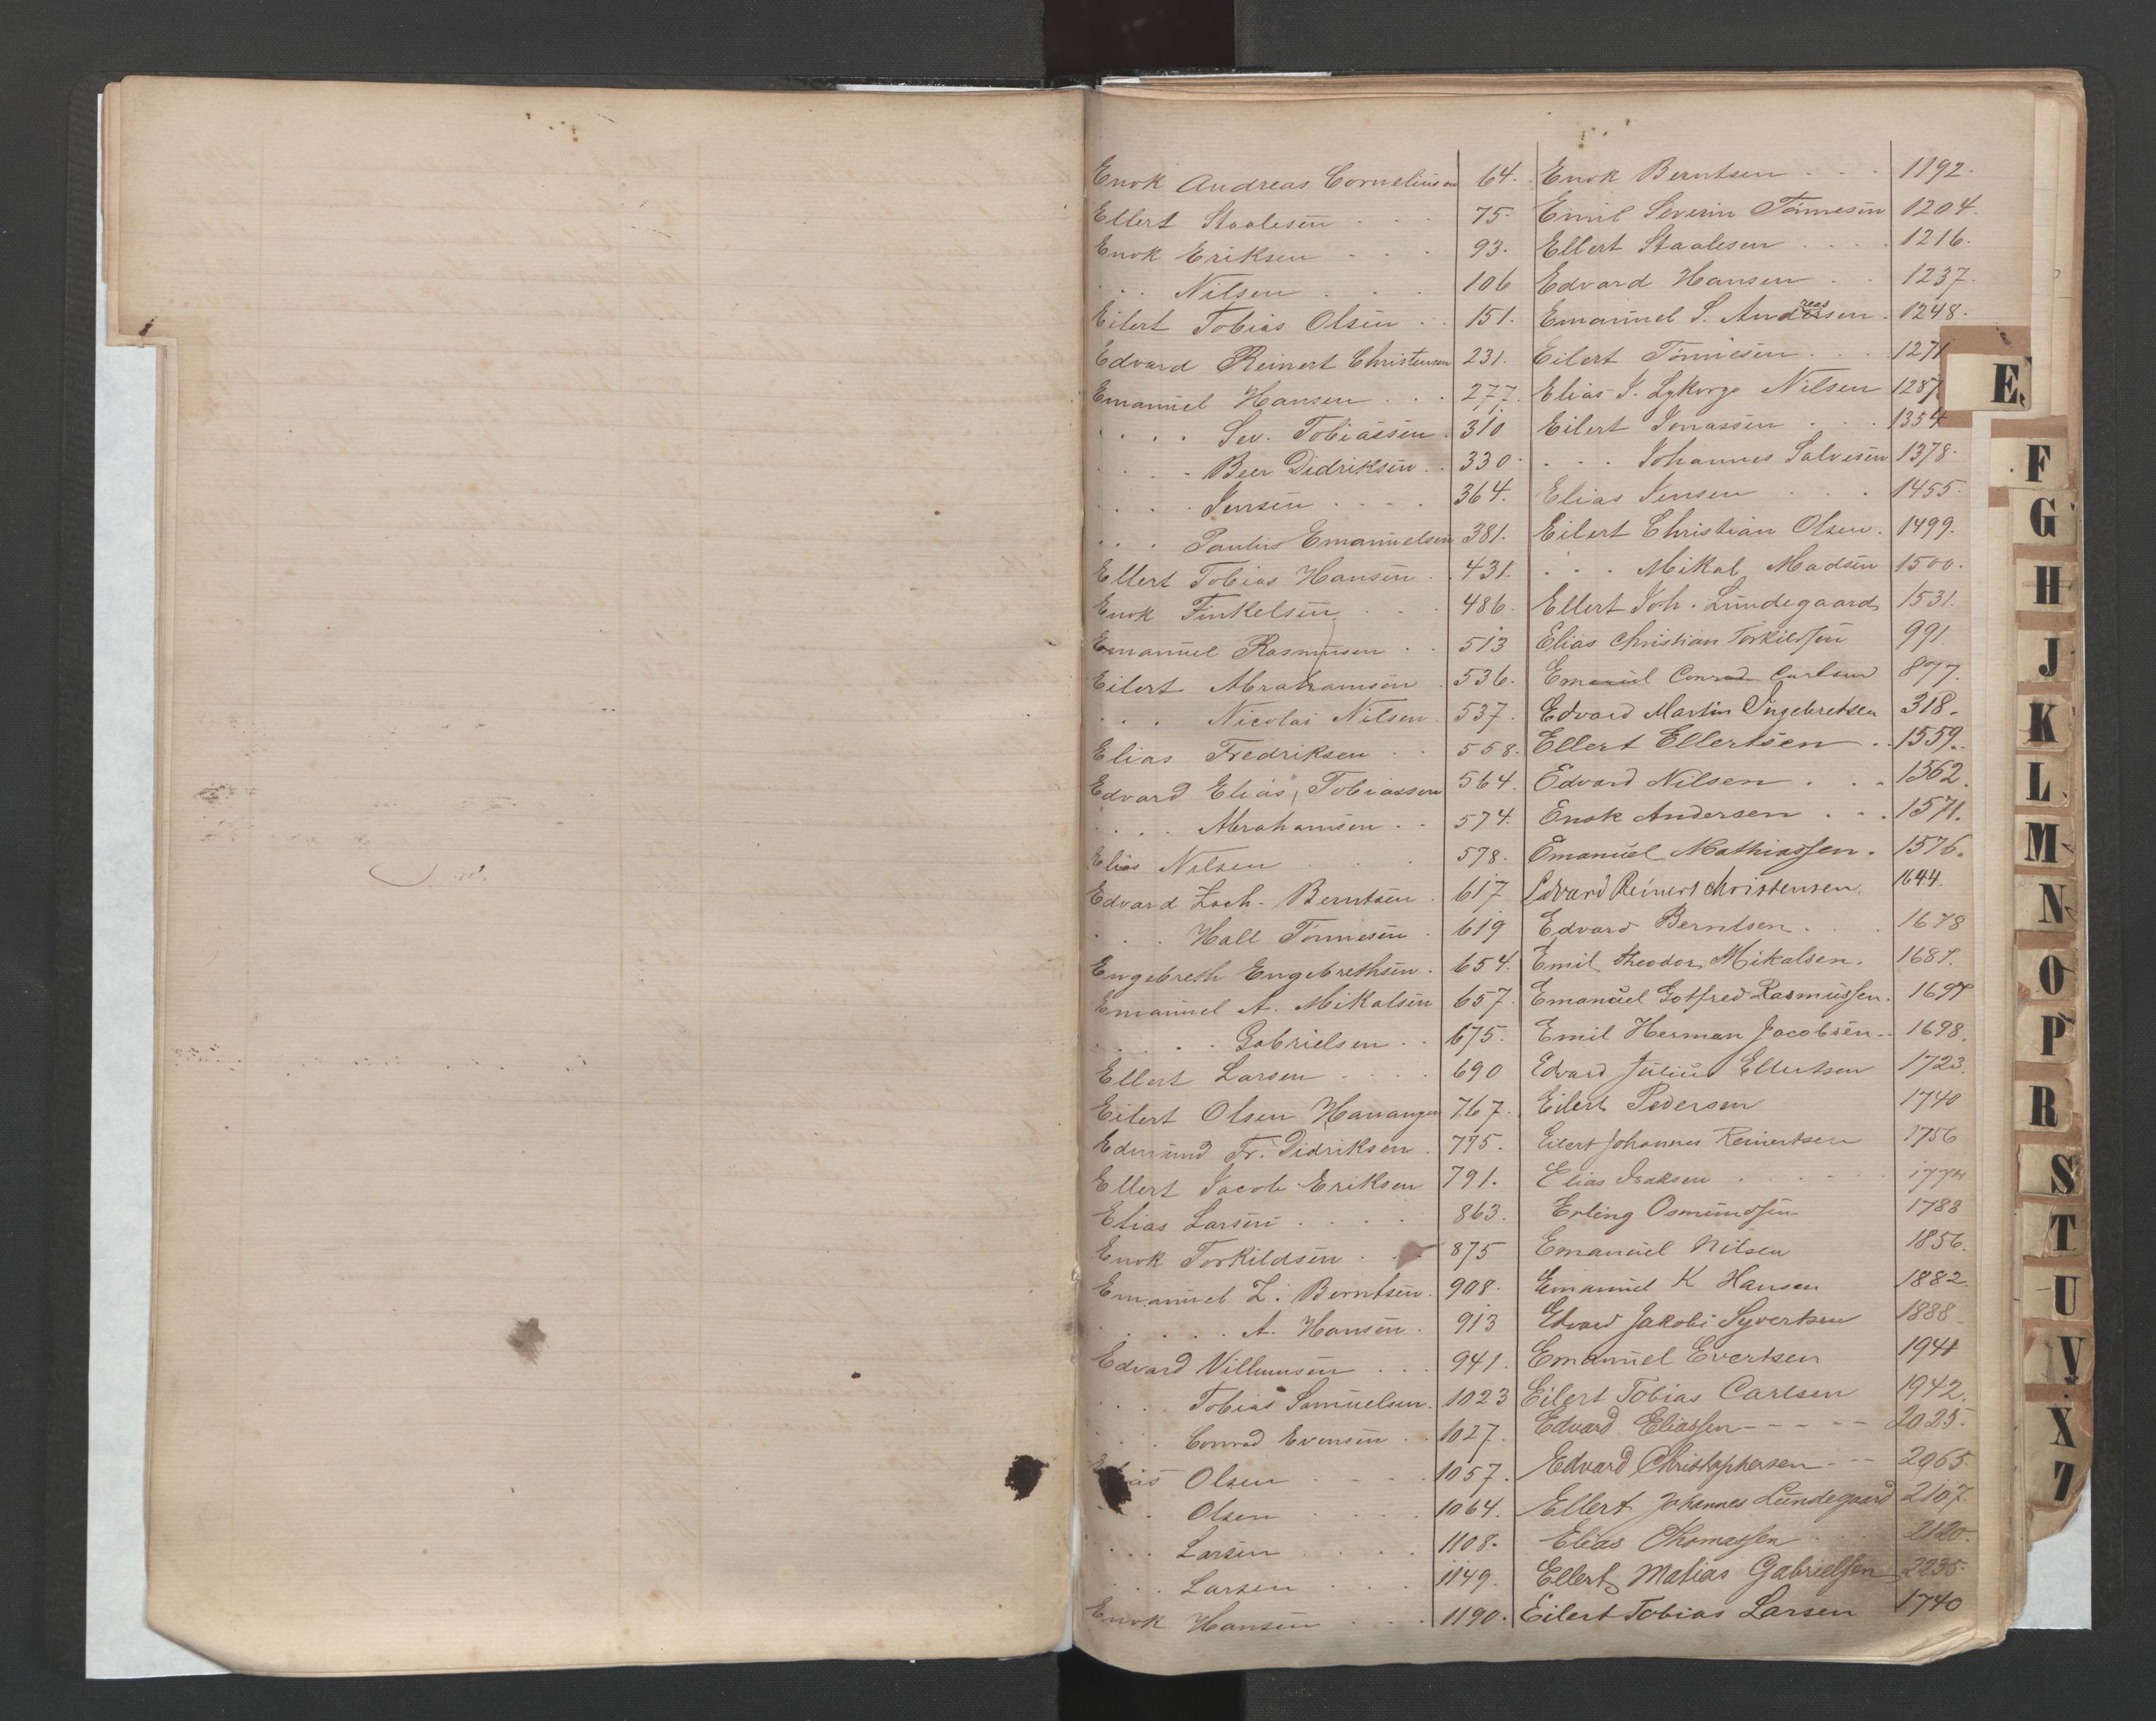 Enok Andreas Corneliusen 64.
Ellert Staalesen . . . 75.
Enok Eriksen . . . 93.
. . . Nilsen . . . 106
Eilert Tobias Olsen . . 151.
Edvard Reinert Christensen 231.
Emanuel Hansen . . . 277.
. . . . Sev. Tobiassen . 310
. . . . Beer Didriksen . . 330
. . . . Jensen . . . . 364.
. . . Paulus Emanuelsen 381.
Ellert Tobias Hansen . . 431.
Enok Finkelsen . . . 486.
Emanuel Rasmusen . . 513
Eilert Abrahamsen . 536.
. . . Nicolai Nilsen . 537.
Elias Fredriksen . . 558.
Edvard Elias Tobiassen 564.
. . . . Abrahamsen . . 574.
Elias Nilsen . . . 578.
Edvard Zach. Berntsen . 617
. . . Hall Tönnesen . 619
Engebreth Engebrethsen . 654.
Emanuel A. Mikalsen 657.
. . . . . Gabrielsen . . 675.
Ellert Larsen . . . . 690
Eilert Olsen Hanangen 767.
Edmund Fr. Didriksen . 775.
Ellert Jacob Eriksen 791.
Elias Larsen . . . . 863.
Enok Torkildsen . . . 875
Emanuel Z. Berntsen . 908.
. . . . . A. Hansen . 913
Edvard Villumsen . . . 941.
. . . . Tobias Samuelsen . 1023
. . . Conrad Evensen . . 1027.
Elias Olsen . . . . 1057.
. . Olsen . . . . 1064.
. . . Larsen . . . . 1108.
. . . Larsen . . . . 1149.
Enok Hansen . . . . 1190.
Enok Berntsen . . . 1192.
Emil Severin Tönnesen 1204.
Ellert Staalesen . . . . 1216.
Edvard Hansen . . 1237.
Emanuel S. Andreassen . 1248.
Eilert Tönnesen . . . 1271
Elias J. Lykorgo Nilsen 1287
Eilert Jonassen . . . 1354
. . . Johannes Salvesen 1378.
Elias Jensen . . . 1455.
Eilert Christian Olsen . 1499.
. . . Mikal Madsen 1500.
Ellert Joh. Lundegaard 1531.
Elias Christian Torkildsen 991.
Emanuel Conrad Carlsen 877.
Edvard Martin Ingebretsen 318.
Ellert Ellertsen . . 1559.
Edvard Nilsen . . . 1562.
Enok Andersen . . . 1571.
Emanuel Mathiassen . 1576.
Edvard Reinert Christensen. 1644.
Edvard Berntsen . . . 1678
Emil Theodor Mikalsen . 1687.
Emanuel Gotfred Rasmussen . 1697
Emil Herman Jacobsen . . 1698.
Edvard Julius Ellertsen 1723.
Eilert Pedersen 1740
Eilert Johannes Reinertsen 1756
Elias Isaksen . . . . . 1774
Erling Osmundsen 1788
Emanuel Nilsen 1856.
Emanuel K Hansen 1882.
Edvard Jakobi Syvertsen 1888
Emanuel Evertsen 1941
Eilert Tobias Carlsen 1942.
Edvard Eliassen - - - - - 2025.
Edvard Christophersen - - - 2065.
Ellert Johannes Lundegaard 2107.
Elias Thomassen . . . . 2120.
Ellert Matias Gabrielsen 2235.
Eilert Tobias Larsen 1740
E.
F
G
H
J
K
L
M
N
O
P
R
S
T
U
V
X